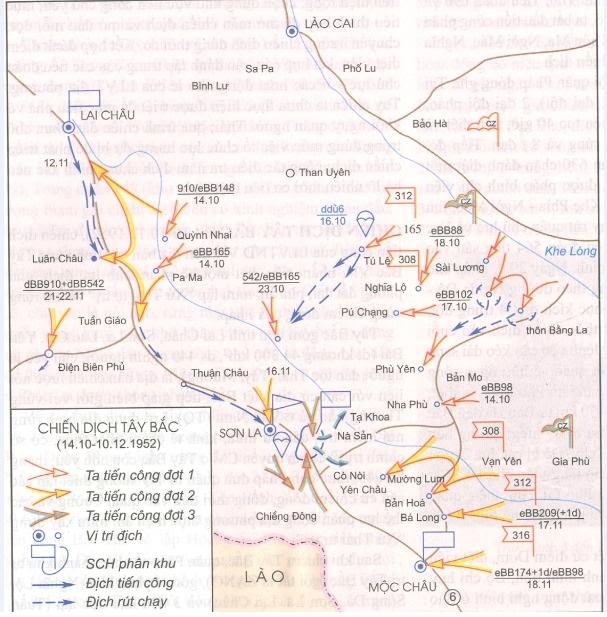 LÀO CAI
Sa Pa
Phố Lu
Bình Lư
LAI CHÂU
Bảo Hà
CZ
12.11
Than Uyên
910/eBB148
14.10
312
CZ
ddù6
16.10
165
eBB88
18.10
Quỳnh Nhai
Khe Lòng
eBB165
14.10
Tú Lệ
308
Luân Châu
Pa Ma
542/eBB165
23.10
Nghĩa Lộ
Sài Lương
dBB910+dBB542
21-22.11
eBB102
17.10
Pú Chạng
Tuần Giáo
thôn Bằng La
Điện Biên Phủ
Thuận Châu
16.11
Phù Yên
Bản Mo
eBB98
14.10
Nha Phù
CHIẾN DỊCH TÂY BẮC
(14.10-10.12.1952)
Tạ Khoa
SƠN LA
Nà Sản
308
CZ
Vạn Yên
Gia Phù
Ta tiến công đợt 1
Ta tiến công đợt 2
Ta tiến công đợt 3
Vị trí địch
SCH phân khu
Địch tiến công
Địch rút chạy
Cò Nòi
Yên Châu
Mường Lum
312
Bản Hoả
Ba Long
eBB209(+1d)
17.11
Chiềng Đông
316
LÀO
MỘC CHÂU
eBB174+1d/eBB98
18.11
6